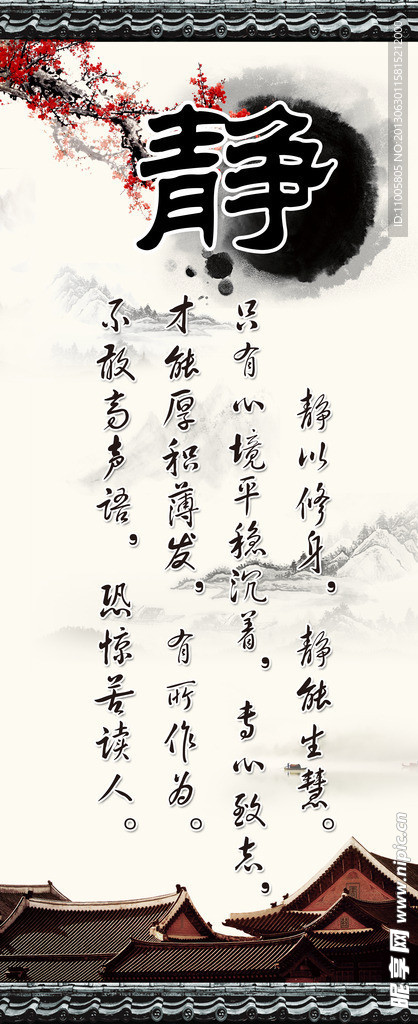 静
静以修身，静能生慧。
只有心境平稳沉着，专心致志，
才能厚积薄发，有所作为。
不敢高声语，恐惊苦读人。
ID:11005805 NO:20130630115815212000
昵享网 www.nipic.cn